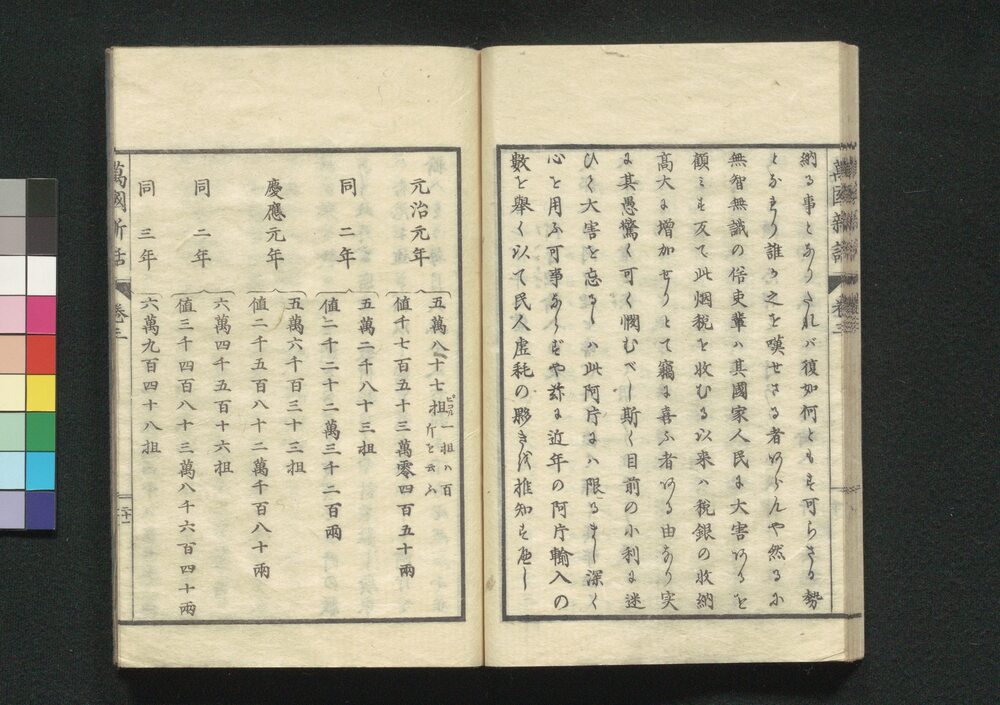 納る事とありたれバ復如何ともす可らざる勢
となり誰か之を嘆せざる者あらんや然るに
無智無識の俗吏輩ハ其國家人民に大害あるを
顧ミず反て此烟税を收むる以来ハ税銀の收納
高大に増加せりとて竊に喜ふ者ある由なり実
に其愚驚く可く憫むべし斯く目前の小利に迷
ひて大害を忘るゝハ此阿片にハ限るまじ深く
心を用ふ可事ならずや茲に近年の阿片輸入の
數を擧く以て民人虚耗の夥きを推知すべし
萬國新話
卷三
元治元年
五萬八千七担 一担ハ百斤を云ふ
ピコル
値千七百五十三萬零四百五十兩
同 二年
五萬二千八十三担
値二千二十二萬三千二百兩
慶應元年
五萬六千百三十三担
値二千五百八十二萬千百八十兩
同 二年
六萬四千五百十六担
値三千四百八十三萬八千六百四十兩
同 三年
六萬九百四十八担
萬國新話
卷三